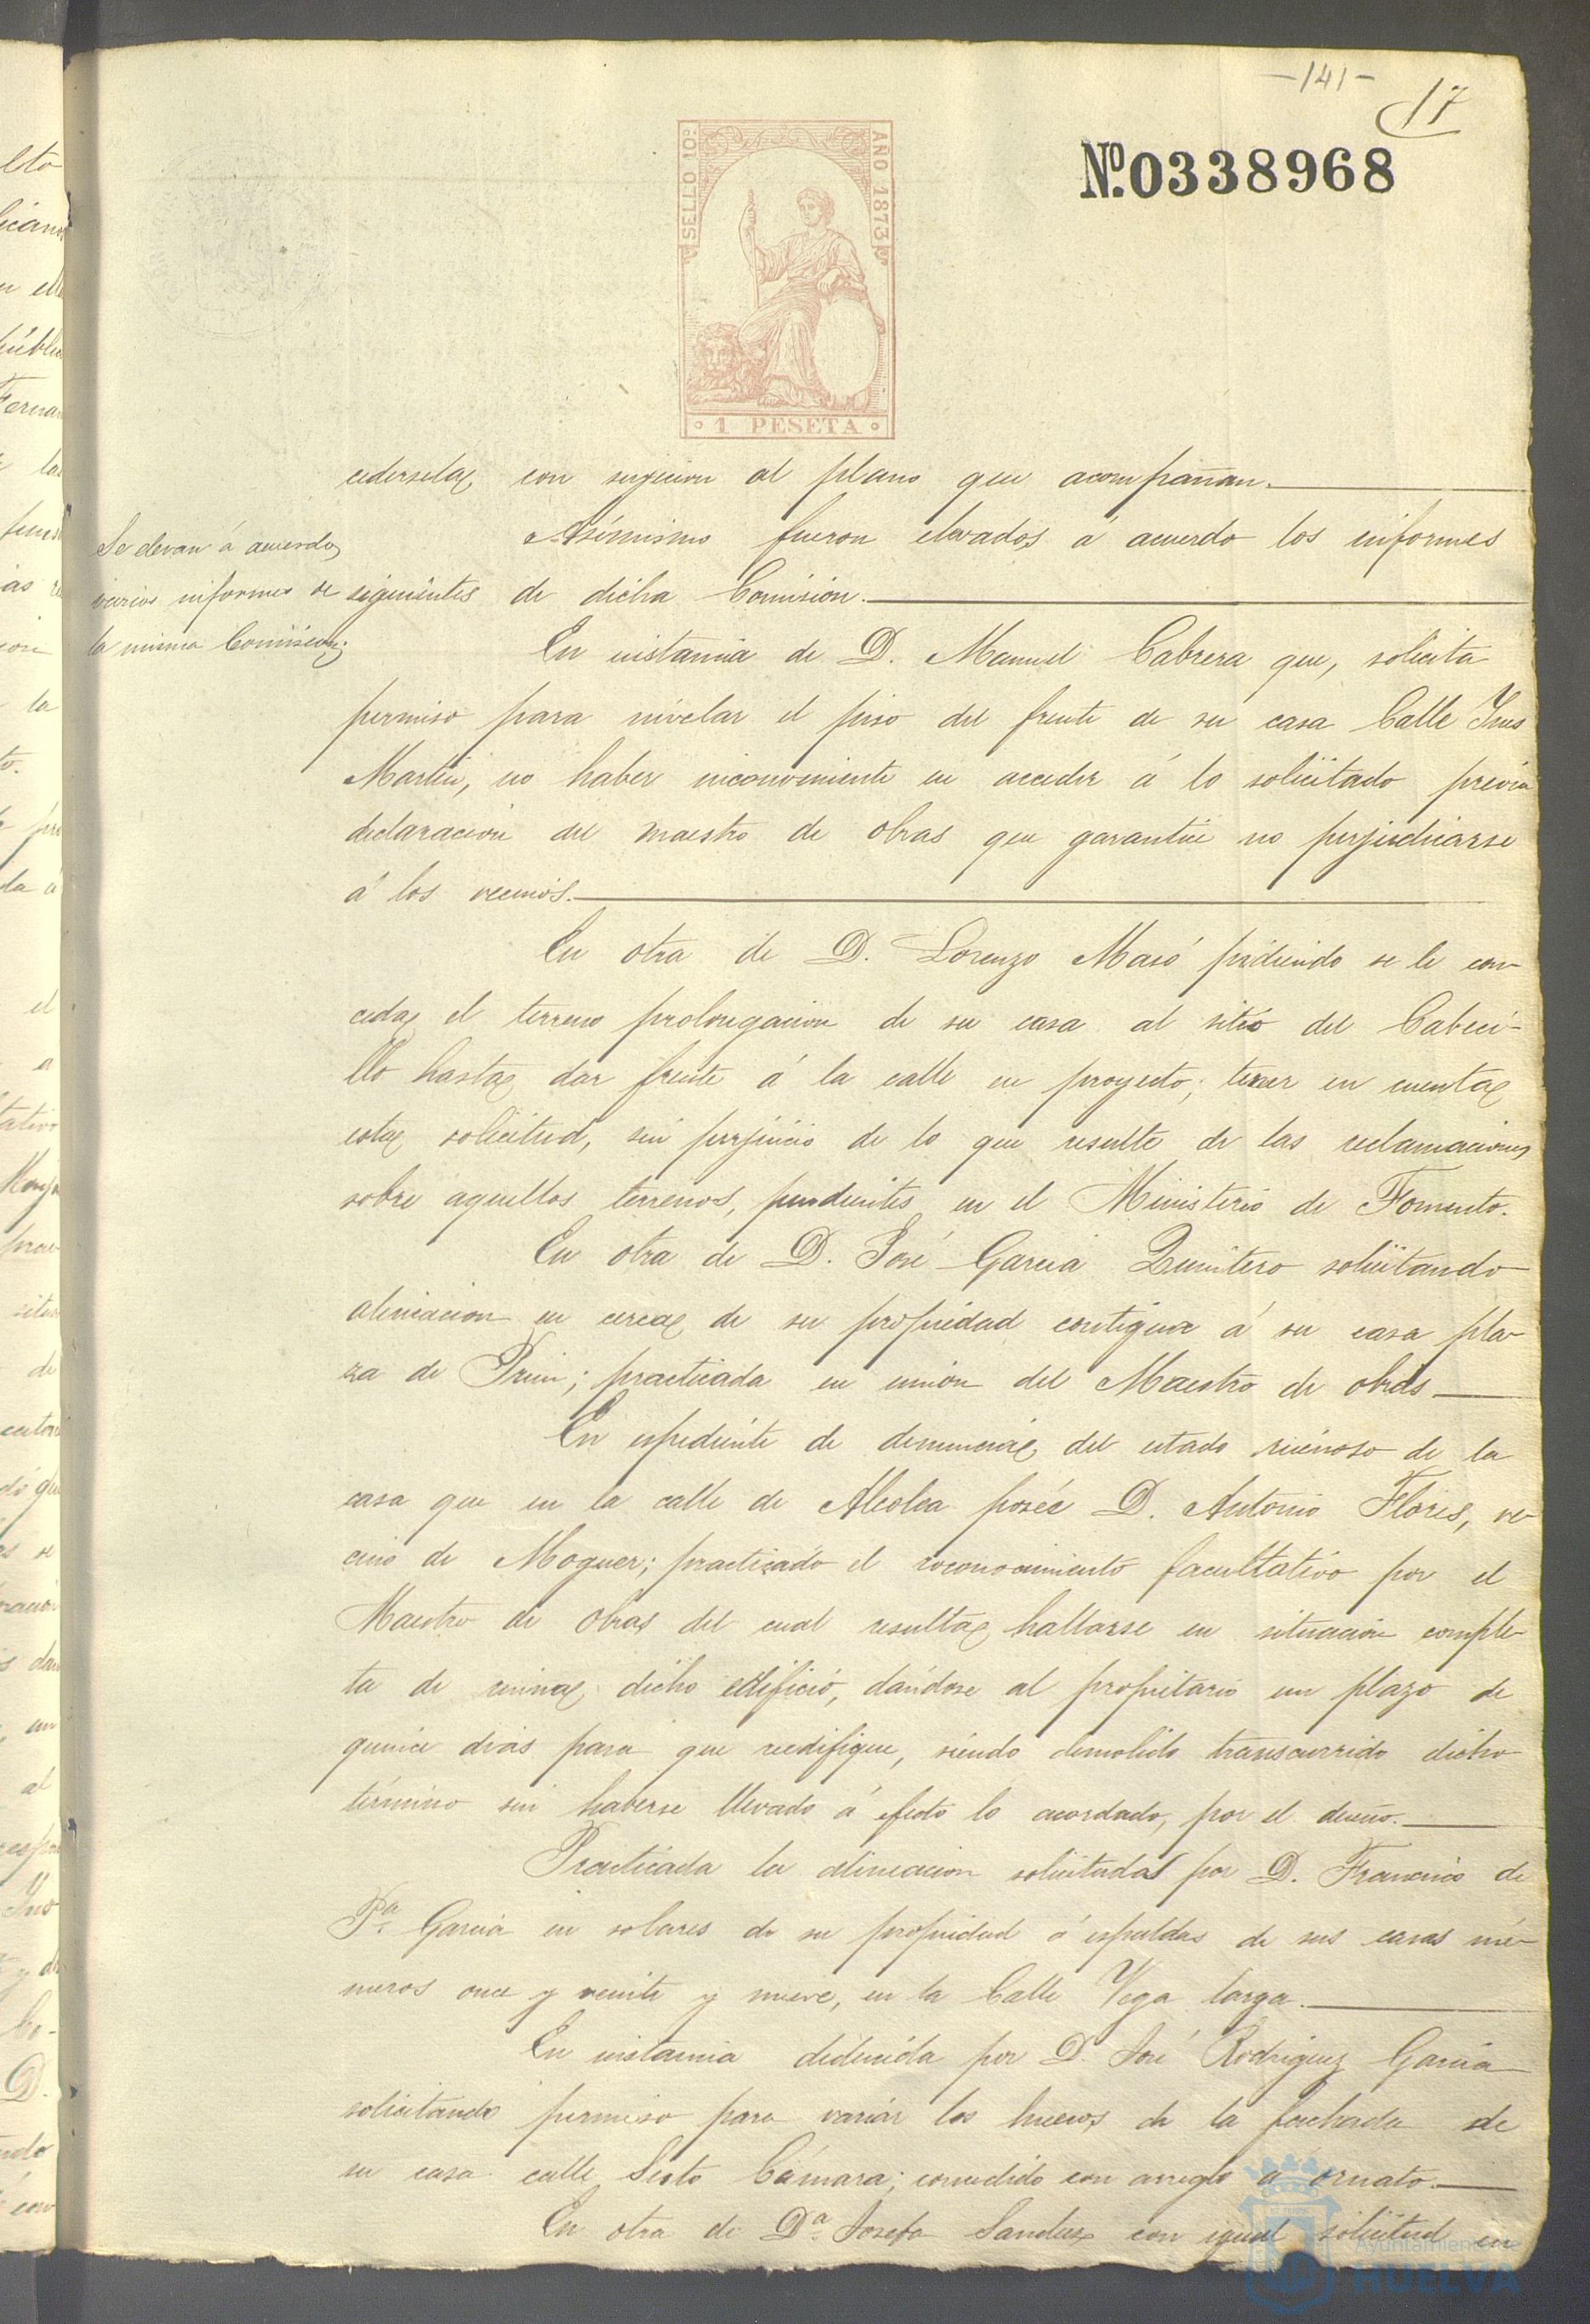 -141-
17
Nº.0338968
SELLO 10º
AÑO 1873
1 PESETA
cedersela con sugecion al plano que acompañan.
Asímismo fueron elevados á acuerdo los informes
Se elevan á acuerdo
varios informes de
la misma Comision;
siguientes de dicha Comision.
En instancia de D. Manuel Cabrera que, solicita
permiso para nivelar el piso del frente de su casa Calle Ynes
Martin, no haber inconveniente en acceder á lo solicitado previa
declaracion del maestro de obras que garantice no perjudicarse
á los vecinos.
En otra de D. Lorenzo Masó pidiendo se le con-
ceda el terreno prolongacion de su casa al sitio del Cabeci-
llo hasta dar frente á la calle en proyecto; tener en cuenta
esta solicitud, sin perjuicio de lo que resulte de las reclamaciones
sobre aquellos terrenos, pendientes en el Ministerio de Fomento.
En otra de D. José Garcia Quintero solicitando
alineacion en cerca de su propiedad contigua á su casa pla-
za de Prim; practicada en union del Maestro de obras
En espediente de denuncia del estado ruinoso de la
casa que en la calle de Alcolea posée D. Antonio Flores, ve-
cino de Moguer; practicado el reconocimiento facultativo por el
Maestro de obras del cual resulta hallarse en situacion comple-
ta de ruina dicho edificio, dándose al propietario un plazo de
quince dias para que reedifique, siendo demolido transcurrido dicho
término sin haberse llevado á efecto lo acordado, por el dueño.
Practicada la alineacion solicitada por D. Francisco de
Pª Garcia en solares de su propiedad á espaldas de sus casas nú-
meros once y veinte y nueve, en la Calle Vega larga.
En instancia deducida por D. José Rodriguez Garcia
solicitando permiso para variar los huecos de la fachada de
su casa calle Sisto Cámara; concedido con arreglo á ornato.
En otra de Dª Josefa con igual solicitud en
Ayuntamiento de
HUELVA